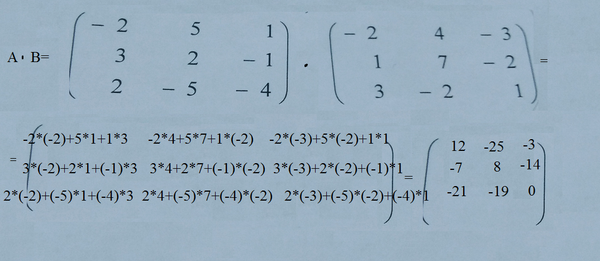 - 2 5 1 - 2 4 - 3
A· B= 3 2 - 1 . 1 7 - 2 =
2 - 5 - 4 3 - 2 1
-2*(-2)+5*1+1*3 -2*4+5*7+1*(-2) -2*(-3)+5*(-2)+1*1 12 -25 -3
= 3*(-2)+2*1+(-1)*3 3*4+2*7+(-1)*(-2) 3*(-3)+2*(-2)+(-1)*1 = -7 8 -14
2*(-2)+(-5)*1+(-4)*3 2*4+(-5)*7+(-4)*(-2) 2*(-3)+(-5)*(-2)+(-4)*1 -21 -19 0